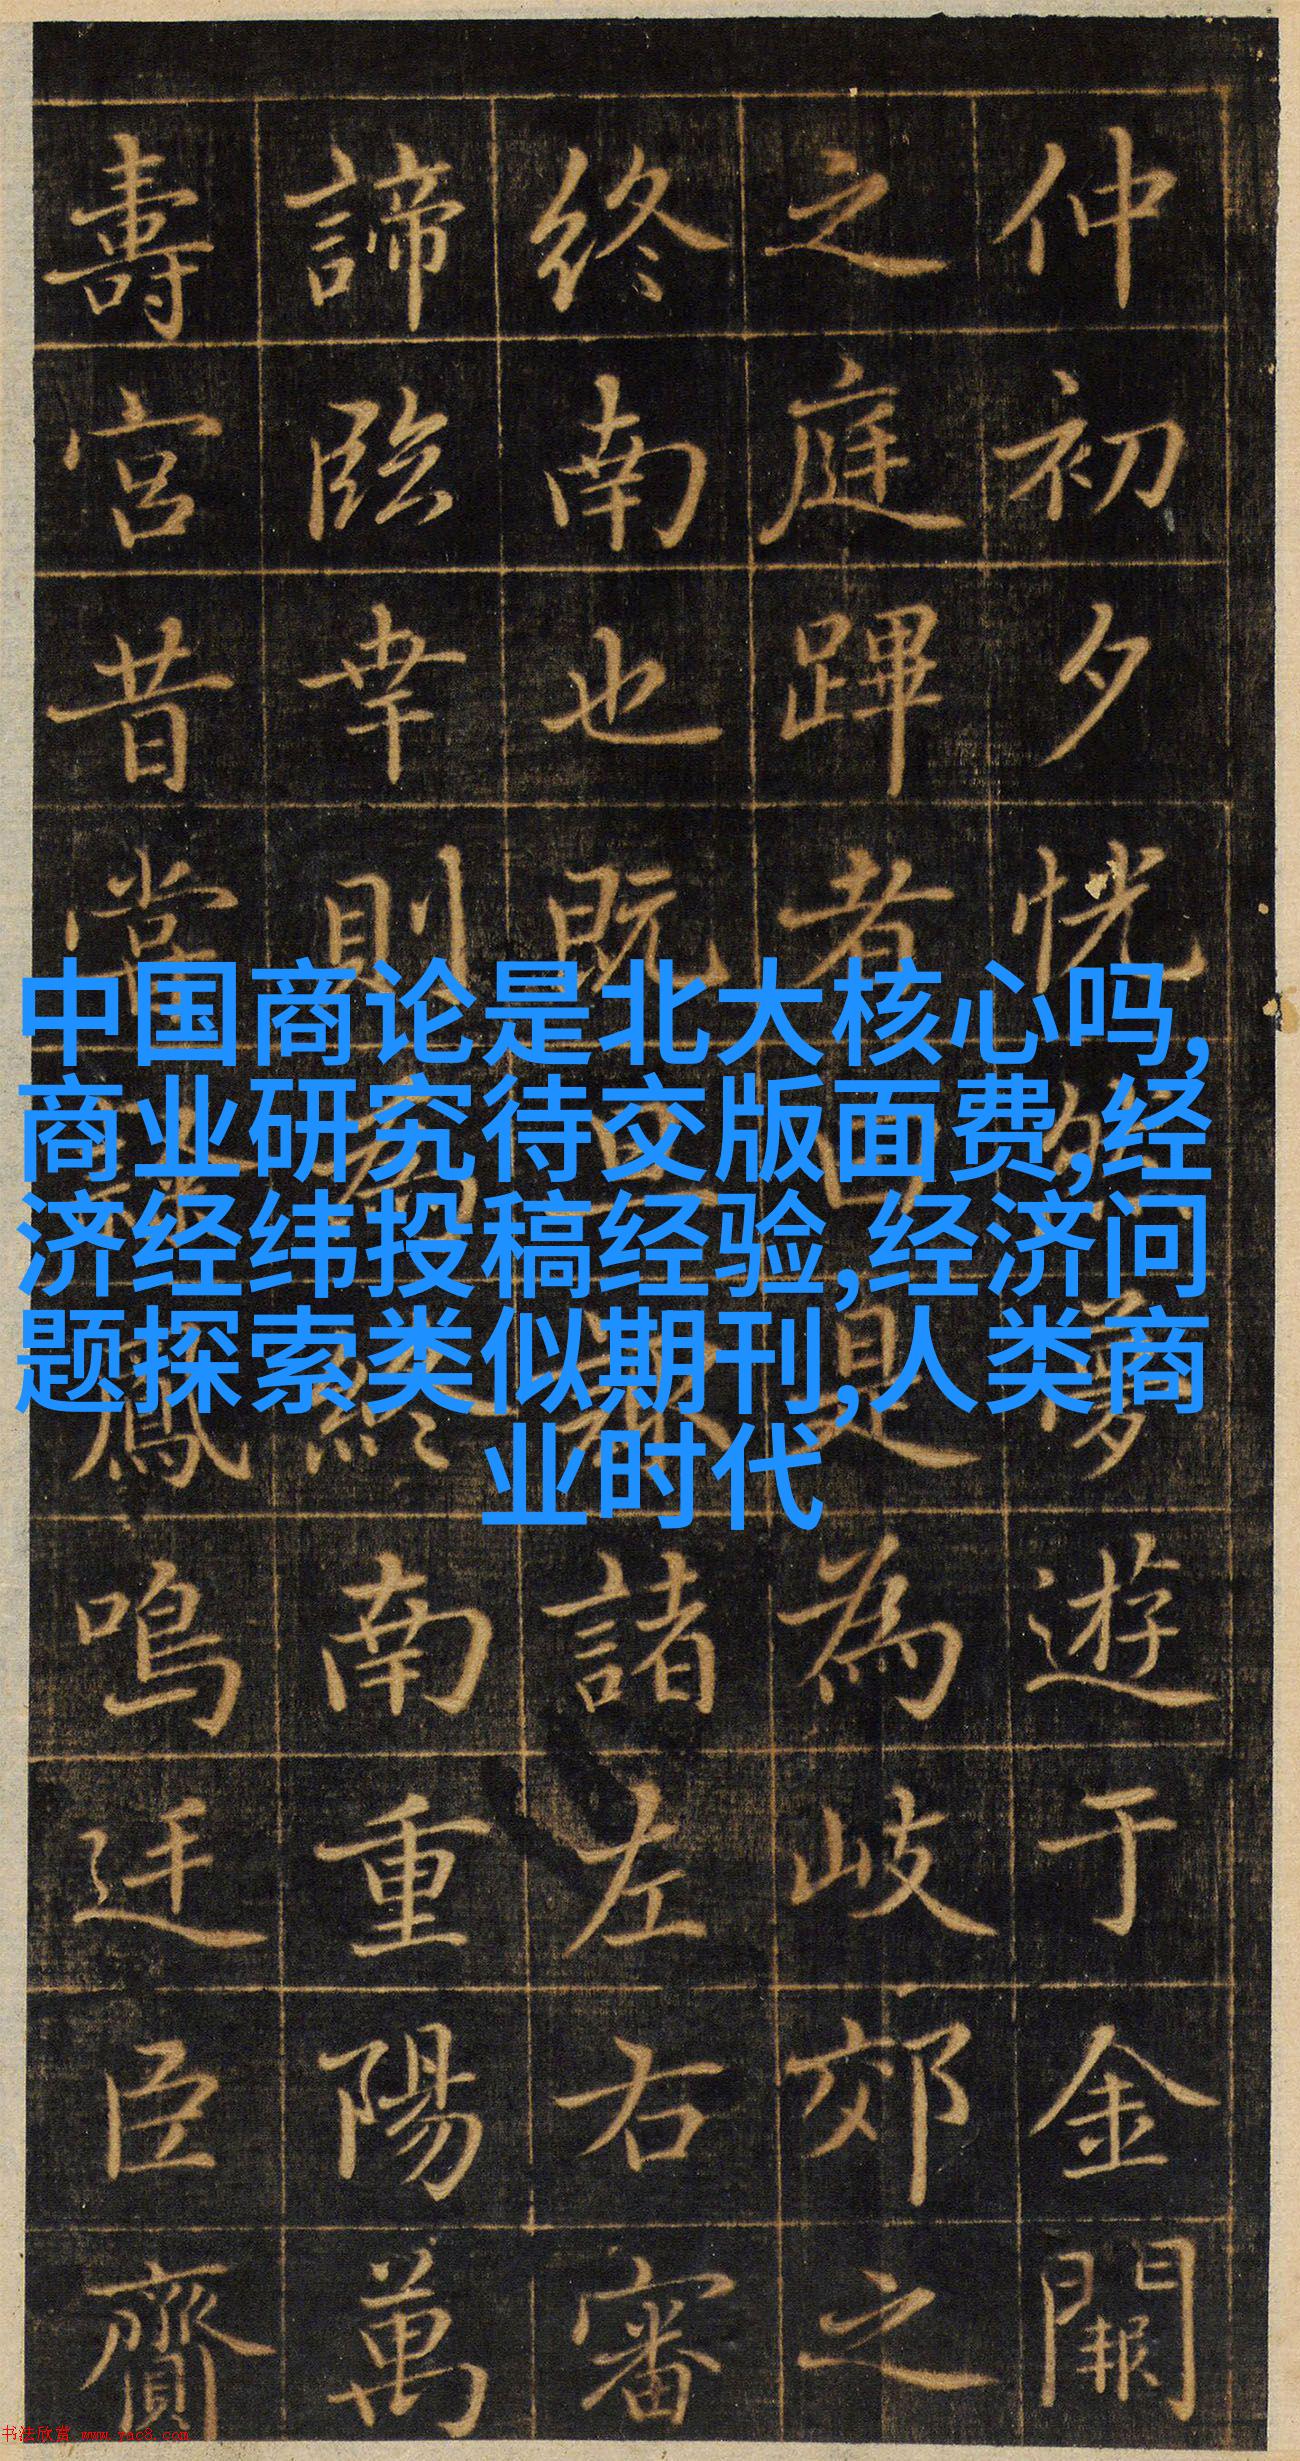 仲初夕恍夢遊于金闕
之庭蹕者曰是為岐郊之
終南也既諸左右審
諦臨幸則終南重陽萬
壽宮昔鳳鳴廷臣齎
中国商论是北大核心吗,
商业研究待交版面费,经
济经纬投稿经验,经济问
题探索类似期刊,人类商
业时代
书法欣赏 www.yac8.com